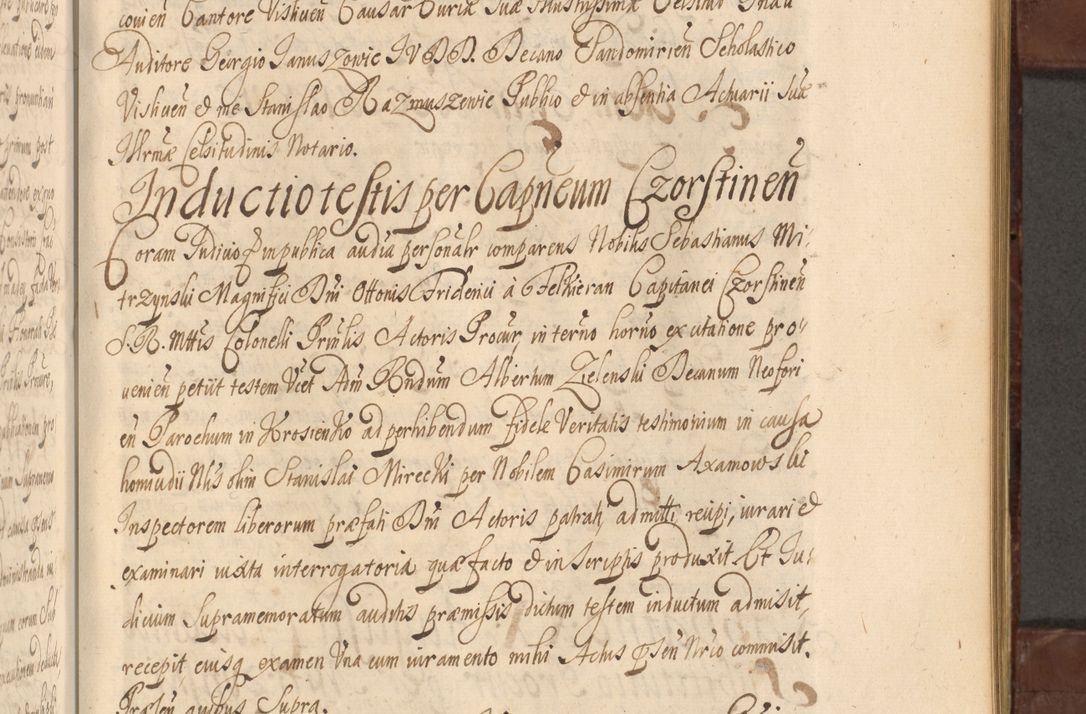 conien Cantore Visliuen Causar Curiæ Suæ Illustrissimæ Celsitud
Auditore Georgio Januszowic JVDD. Decano Sandomirien Scholastico
Visliuen et me Stanislao Razmuszewic Publico et in absentia Actuarii Suæ
Illrmæ Celsitudinis Notario.
Inductio testis per Capneum Czorstinen
Coram Judicio q̃ in publica audia personalr comparens Nobilis Sebastianus Mi-
trzynski Magnifici Dni Ottonis Friderici à Felkieran Capitanei Czorstinen
S. R. Mttis Colonelli Prinlis Actoris Procur in terno horno ex citatione pro-
uenien petiit testem Vcet Adm Rndum Albertum Zielenski Decanum Neofori
en Parochum in Krosienko ad perhibendum fidele Veritatis testimonium in causa
homicidii Nlis olim Stanislai Mirecki per Nobilem Casimirum Axamowski
Inspectorem liberorum præfati Dni Actoris patrati admitti recipi, iurari et
examinari iuxta interrogatoria quæ facto et in scriptis produxit. Et Ju-
dicium supramemoratum auditis præmissis dictum testem inductum admisit,
recepit, eiusq examen Vna cum iuramento mihi Actus psen Nrio commisit.
Præsen quibus Supra.